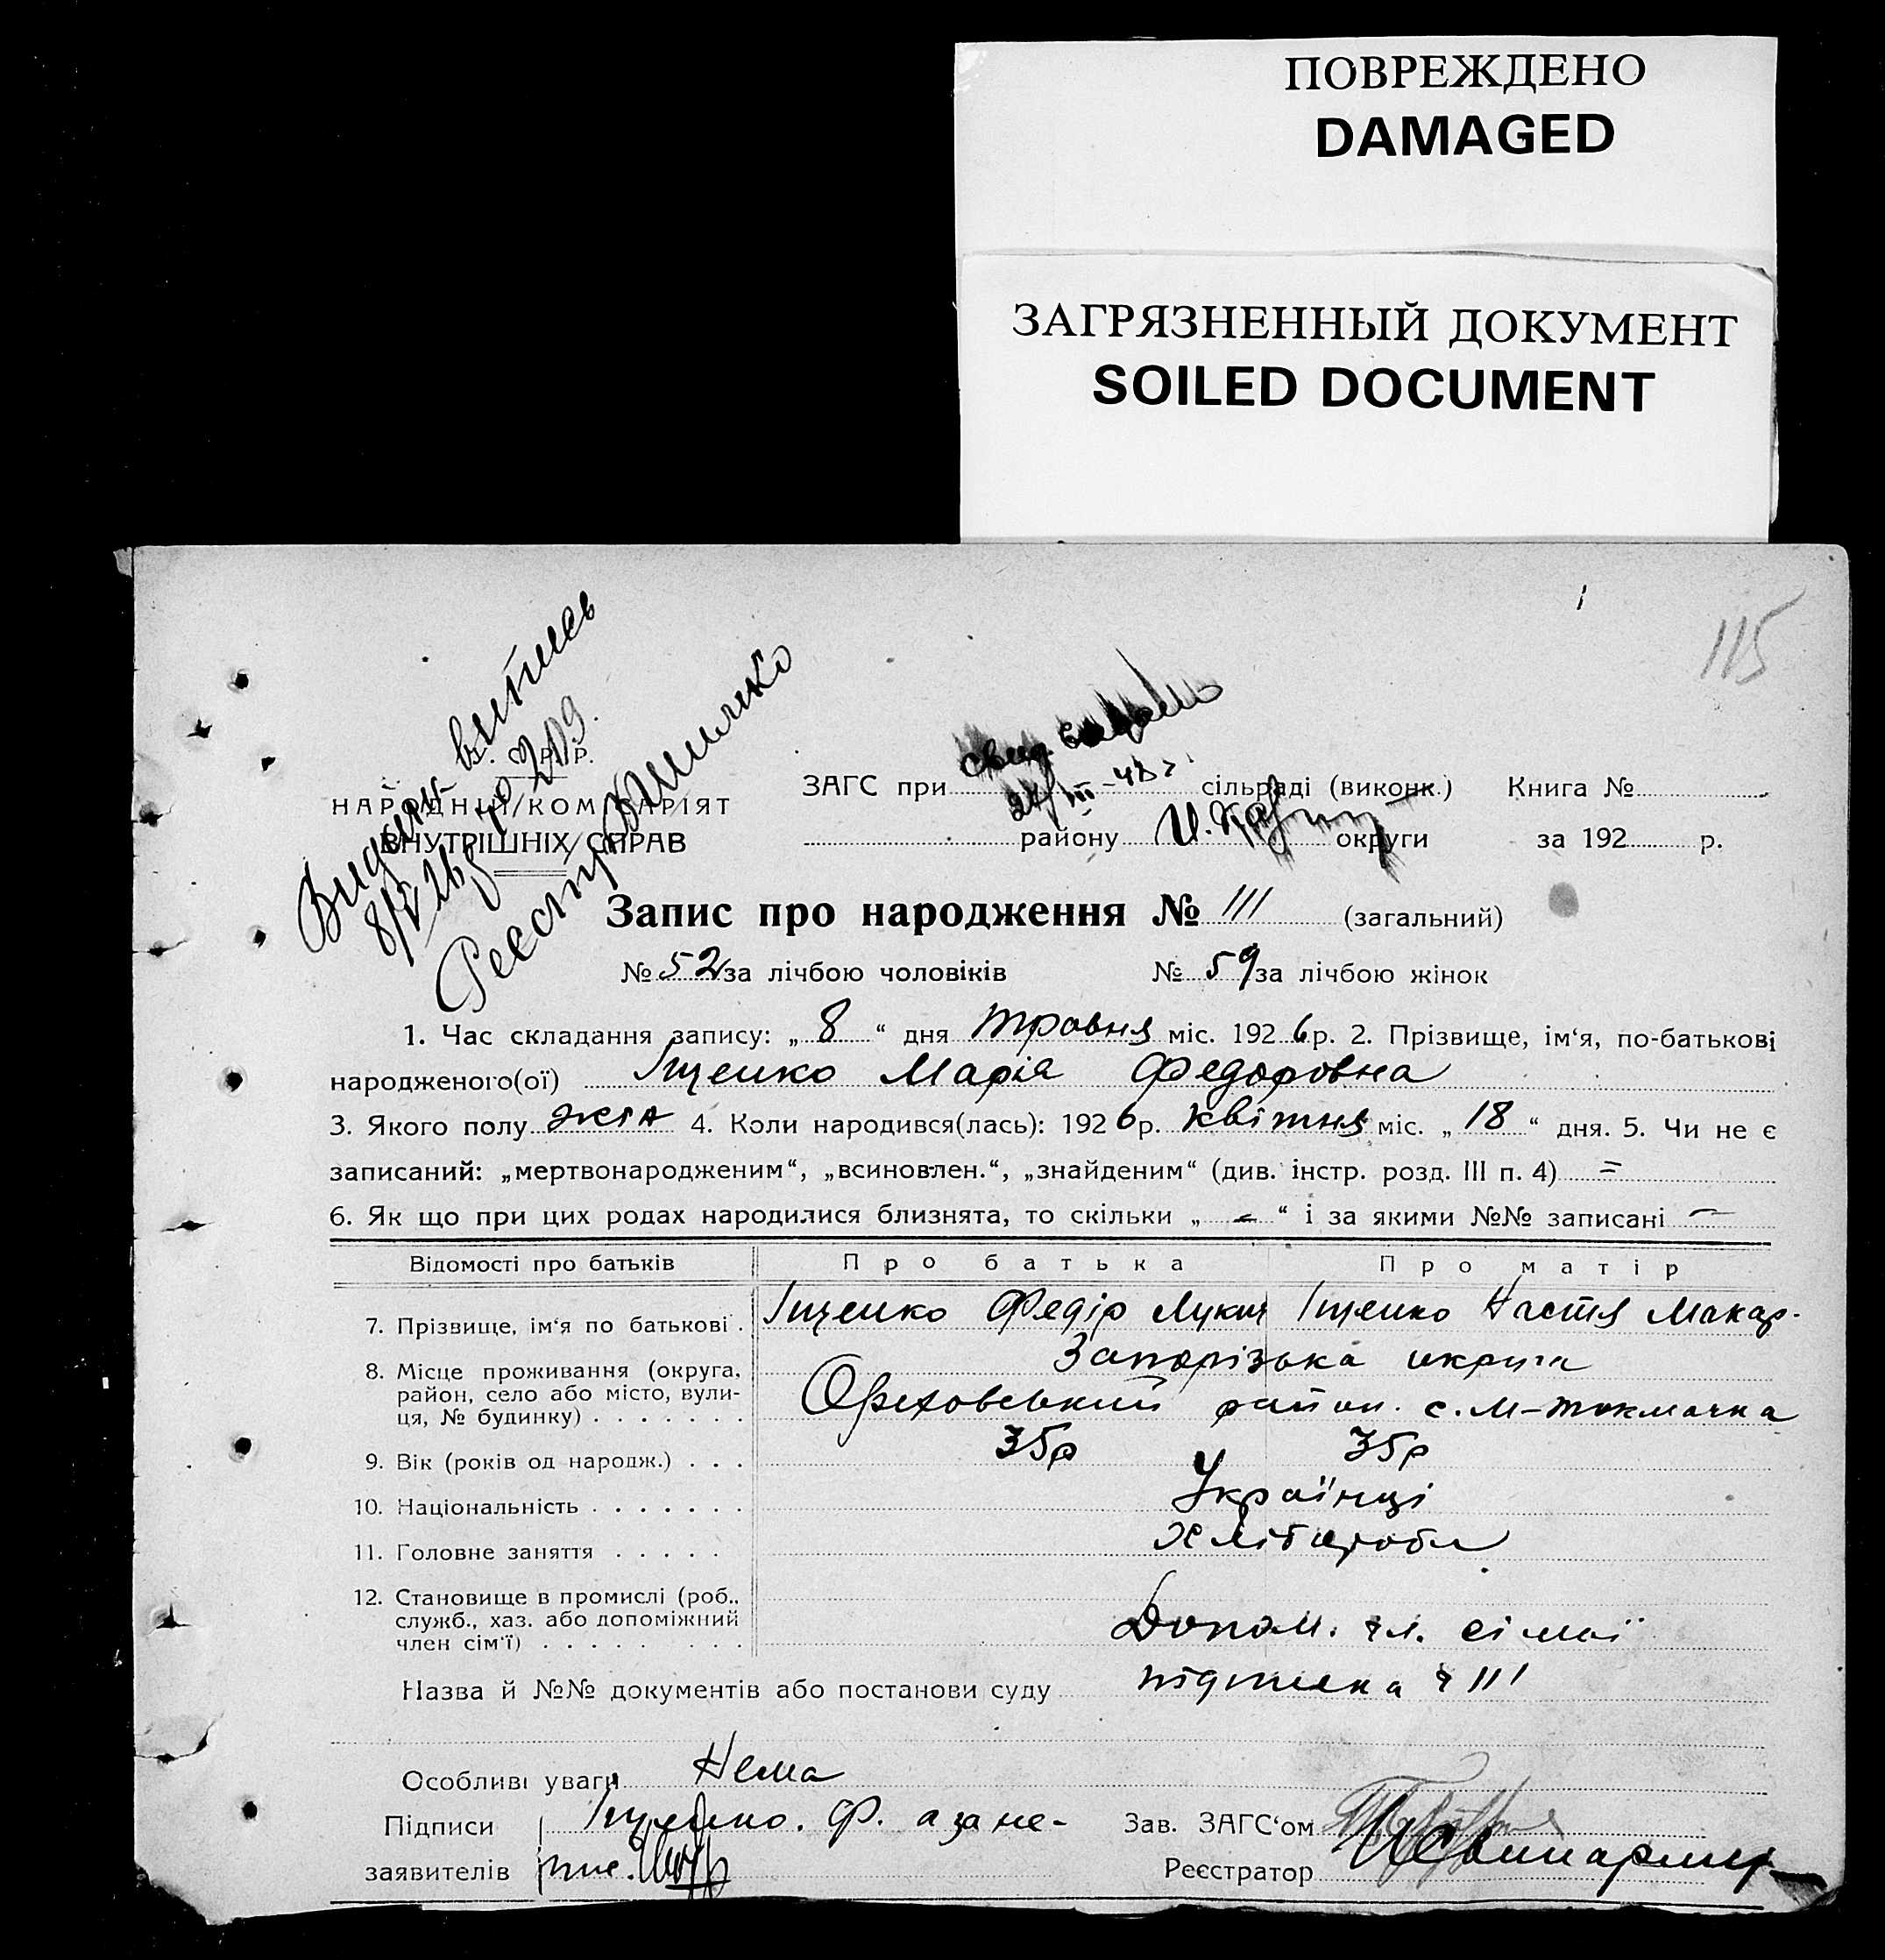 ПОВРЕЖДЕНО
DAMAGED
ЗАГРЯЗНЕННЫЙ ДОКУМЕНТ
SOILED DOCUMENT
115
Видан витись
8/V 26 р № 209.
Реєстр
НАРОДНІЙ КОМІСАРІЯТ
ВНУТРІШНІХ СПРАВ
ЗАГС при сільраді (виконк.) Книга №
24/III-48 г.
району округи за 192 р.
Запис про народження № 111 (загальний)
№ 52 за лічбою чоловіків № 59 за лічбою жінок
1. Час складання запису: „ 8 “ дня травня міс. 192 6 р. 2. Прізвище, ім‘я, по-батькові
народженого(ої) Іщенко Марія Федоровна
3. Якого полу жін 4. Коли народився(лась): 192 6 р. квітня міс. „ 18 “ дня. 5. Чи не є
записаний: „мертвонародженим“, „всиновлен.“, „знайденим“ (див. інстр. розд. III п. 4) =
6. Як що при цих родах народилися близнята, то скільки „ – “ і за якими №№ записані –
Відомості про батьків Про батька Про матір
7. Прізвище, ім‘я по батькові . Іщенко Федір Лукич Іщенко Настя Макар.
8. Місце проживання (округа, Запорізька округа
район, село або місто, вули- Ореховський район. с. М-Токмачка
ця, № будинку) . . . . . . .
9. Вік (років од народж.) . . . 35р 35р
10. Національність . . . . . . . Українці
11. Головне заняття . . . . . Хлібороби
12. Становище в промислі (роб.,
служб., хаз. або допоміжний Допом. чл. сімьї
член сім‘ї) . . . . . . . .
Назва й №№ документів або постанови суду ч 111
Особливі уваги Нема
Підписи Іщенко. Ф. а за не- Зав. ЗАГС‘ом
заявителів Реєстратор